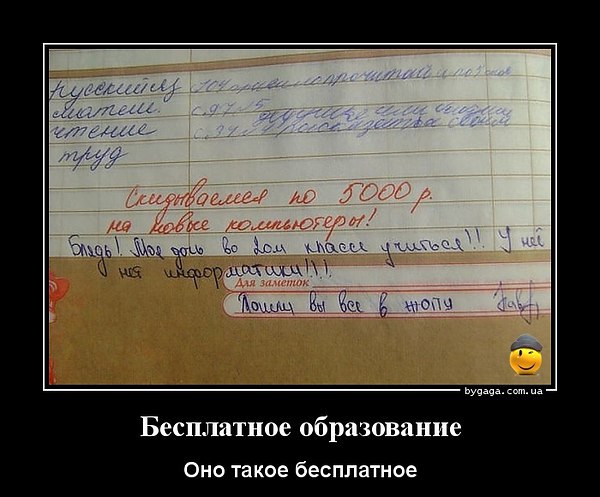 Русский яз
матем.
чтение
труд
Скидываемся по 5000 р.
на новые компьютеры!
Блядь! Моя дочь во 2ом классе учиться!! У неё
нет информатики!!!
Для заметок
Пошли вы все в жопу
bygaga.com.ua
Бесплатное образование
Оно такое бесплатное